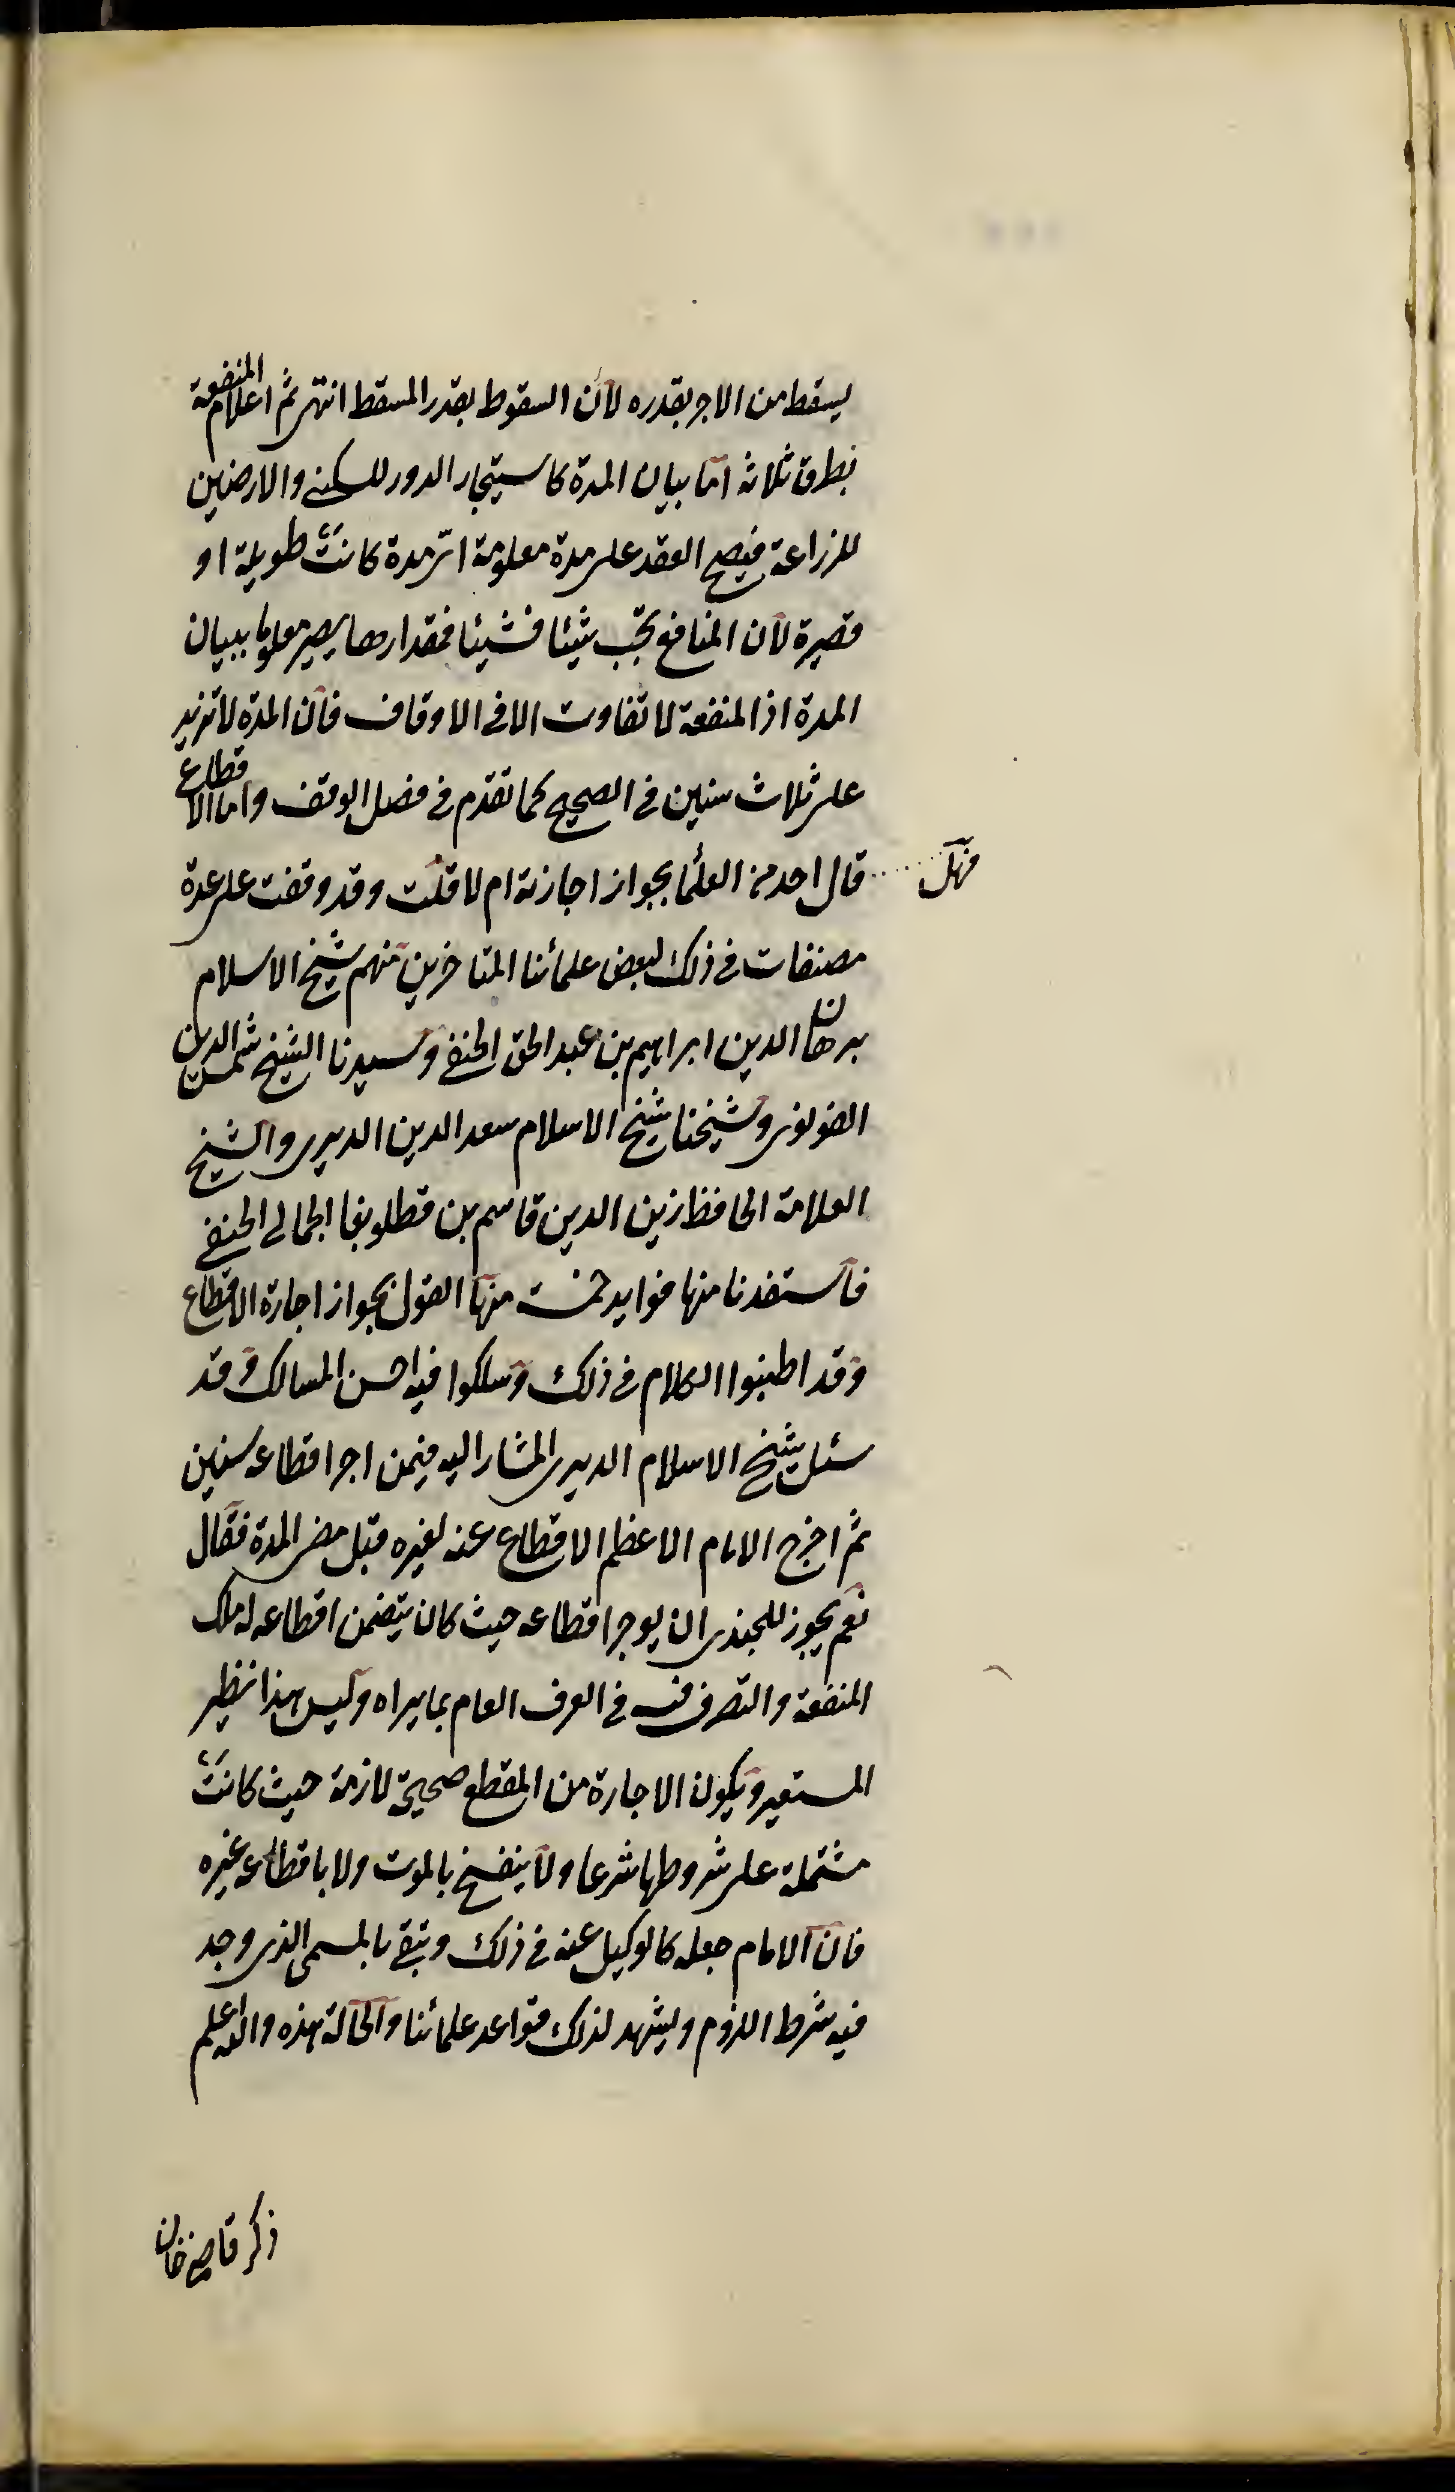 يسقط من الاجر بقدره لان السقوط بقدر المسقط انتهى ثم اعلام المنفعة
بطرق ثلاثة اما ببيان المدة كاستيجار الدور للسكنى والارضين
للزراعة فيصح العقد على مدة معلومة اىّ مدة كانت طويلة او
قصيرة لان المنافع تجب شيئا فشيئا فمقدارها يصير معلوما ببيان
المدة اذ المنفعة لا تفاوت الا فى الاوقاف فان المدة لا تزيد
على ثلاث سنين فى الصحيح كما تقدم فى فصل الوقف واما الاقطاع
فهل
قال احد من العلما بجواز اجازته ام لا قلت وقد وقفت على عدة
مصنفات فى ذلك لبعض علمائنا المتاخرين منهم شيخ الاسلام
برهان الدين ابراهيم بن عبد الحق الحنفى وسيدنا الشيخ شمس الدين
القونوى وشيخنا شيخ الاسلام سعد الدين الديرى والشيخ
العلامة الحافظ زين الدين قاسم بن قطلوبغا الجمالى الحنفى
فاستفدنا منها فوايد جمة منها القول بجواز اجارة الاقطاع
وقد اطنبوا الكلام فى ذلك وسلكوا فيه احسن المسالك وقد
سئل شيخ الاسلام الديرى المشار اليه فيمن اجر اقطاعه سنين
ثم اخرج الامام الاعظم الاقطاع عنه لغيره قبل مضى المدة فقال
نعم يجوز للجندى ان يوجر اقطاعه حيث كان يتضمن اقطاعه له ملك
المنفعة والتصرف فيه فى العرف العام بما يراه وليس هذا نظير
المستعير ويكون الاجارة من المقطع صحيحة لازمة حيث كانت
مشتملة على شروطها شرعا ولا ينفسخ بالموت ولا باقطاعه غيره
فان الامام جعله كالوكيل عنه فى ذلك وتبقى بالمسمى الذى وجد
فيه شرط اللزوم ويشهد لذلك قواعد علمائنا والحالة هذه والله اعلم
ذكر قاضى خان